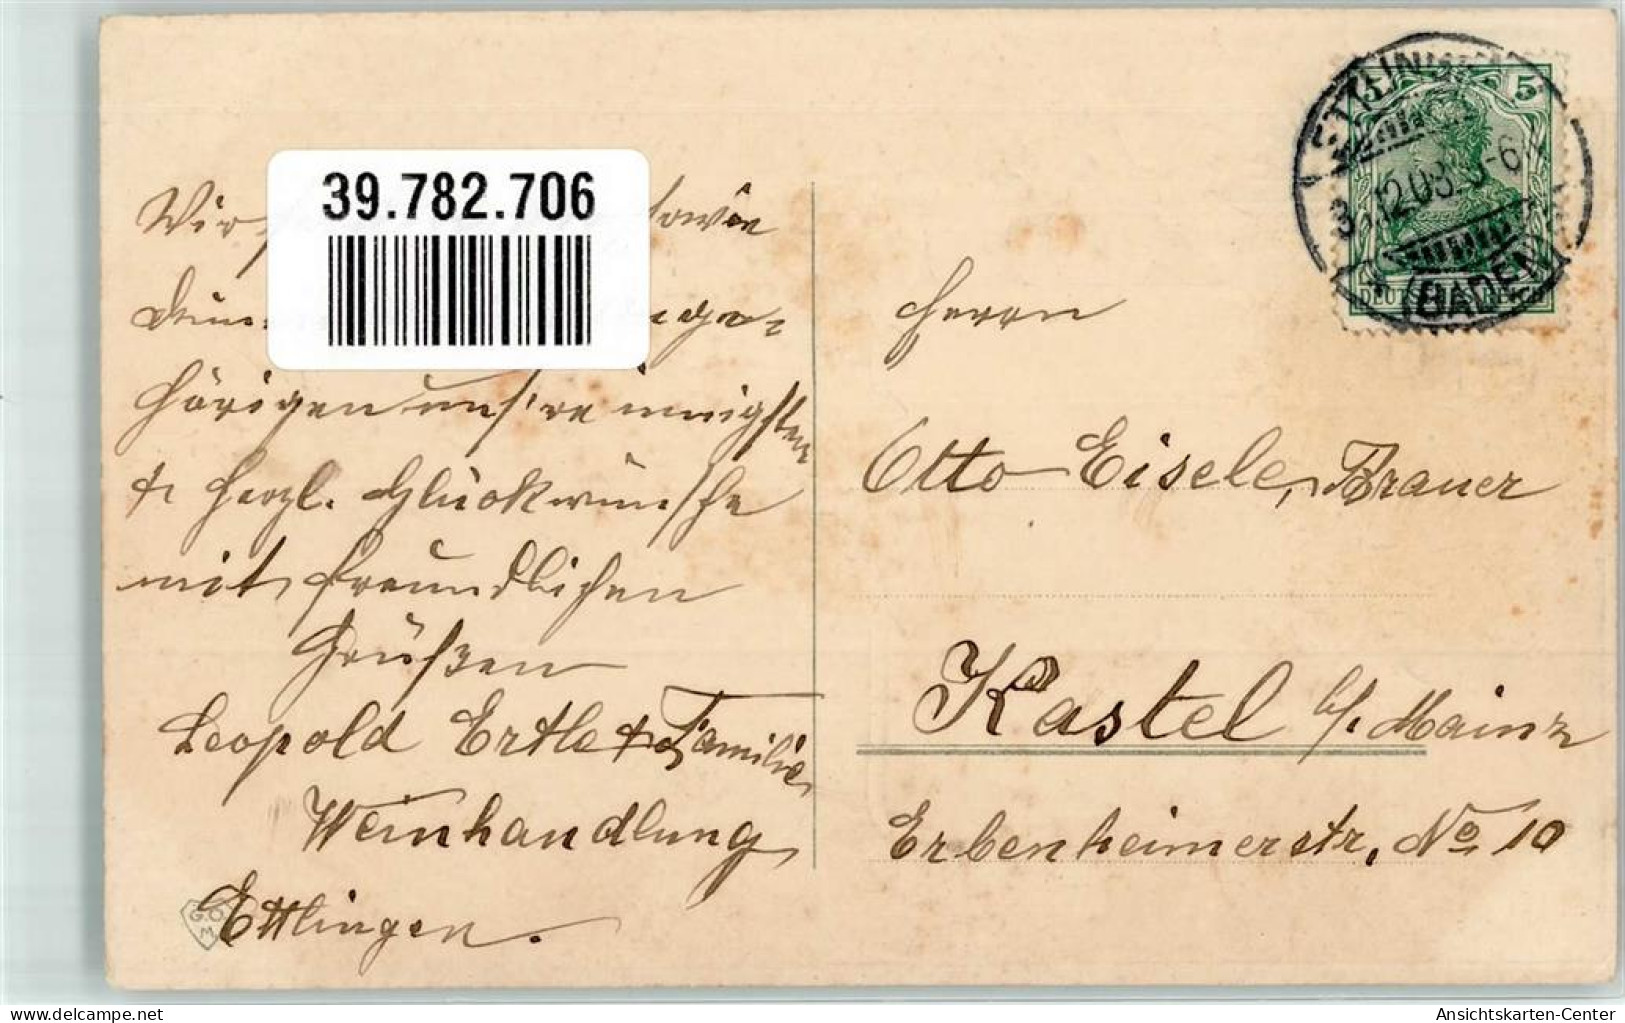 39.782.706
Wir sowie
Deine Ange-
hörigen uns're innigsten
& herzl. Glückwünsche
mit freundlichen
Grüßen
Leopold Ertle & Familie
Weinhandlung
Ettlingen.
G.O.
M.
ETTLINGEN
31.12.08. 5-6
(BADEN)
5 5
DEUTSCHES REICH
Herrn
Otto Eisele, Brauer
Kastel b/. Mainz
Erbenheimerstr. No 10
Ansichtskarten-Center